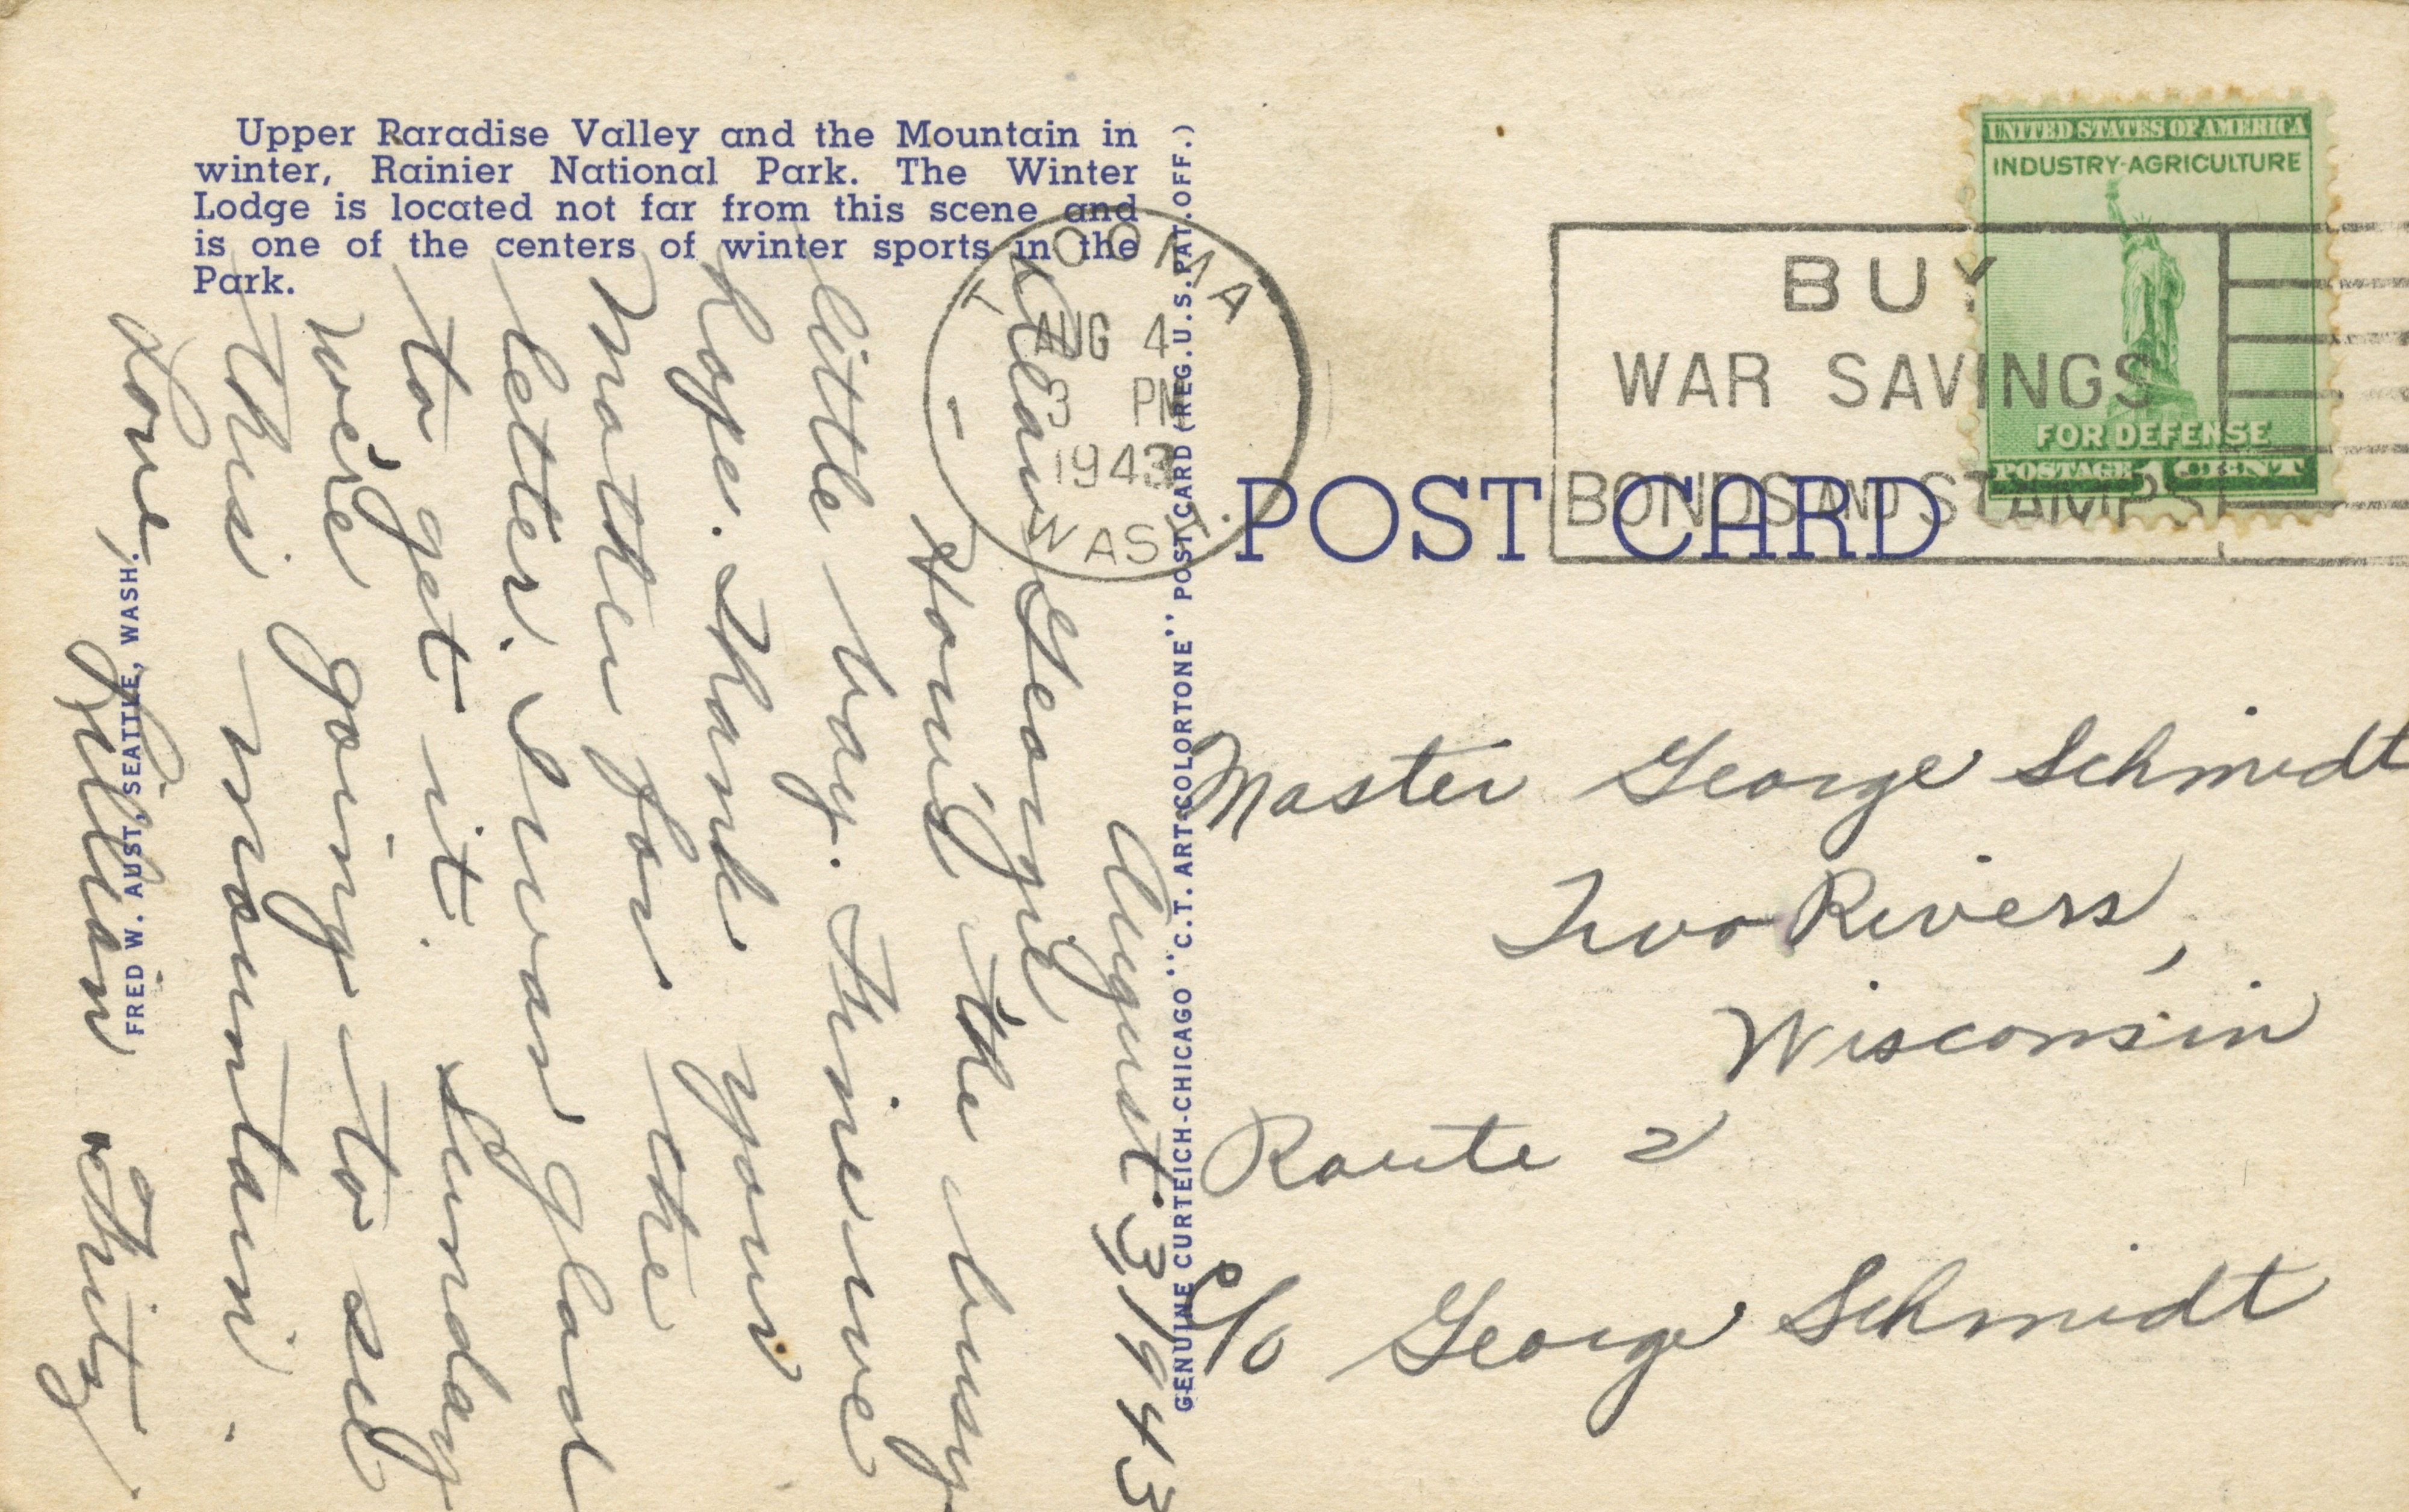 Upper Paradise Valley and the Mountain in
winter, Rainier National Park. The Winter
Lodge is located not far from this scene and
is one of the centers of winter sports in the
Park.
August 3, 1943
Dear Georgie
How's the busy
little boy. Fine we
hope. Thank your
mother for the
letter. I was glad
to get it. Sunday
we're going to see
this mountain.
Love,
Lillian & Fritz
FRED W. AUST, SEATTLE, WASH.
GENUINE CURTEICH-CHICAGO "C.T. ART-COLORTONE" POST CARD (REG. U.S. PAT. OFF.)
TACOMA
AUG 4
3 PM
1943
WASH.
BUY
WAR SAVINGS
BONDS AND STAMPS
UNITED STATES OF AMERICA
INDUSTRY-AGRICULTURE
FOR DEFENSE
POSTAGE 1 CENT
POST CARD
Master George Schmidt
Two Rivers,
Wisconsin
Route 2
c/o George Schmidt